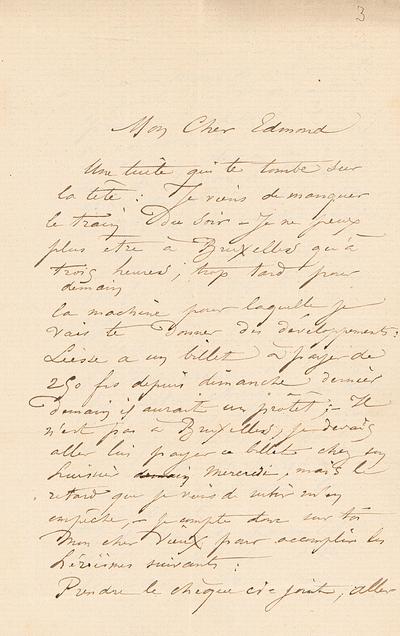 3
Mon Cher Edmond
Une tuile qui te tombe sur
la tête : Je viens de manquer
le train du soir - Je ne peux
plus etre à Bruxelles qu'à
trois heures, trop tard pour
demain
la machine pour laquelle je
vais te donner des développements:
Liesse a un billet à payer de
250 frs depuis dimanche dernier
Demain il aurait un protêt ; - Il
n'est pas à Bruxelles, je devais
aller lui payer ce billet chez son
huissier demain Mercredi, mais le
retard que je viens de subir m'en
empêche, - je compte donc sur toi
Mon cher vieux pour accomplir les
héroïsmes suivants :
Prendre le chèque ci-joint, aller